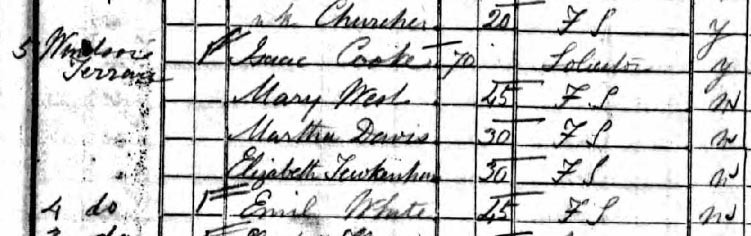 n k Churcher 20 F S y
5 Windsor Terrace 1 Isaac Cooke 70 Solicitor y
Mary West 45 F S n
Martha Davis 30 F S n
Elizabeth 30 F S n
4 do 1 Emil White 45 F S n
do